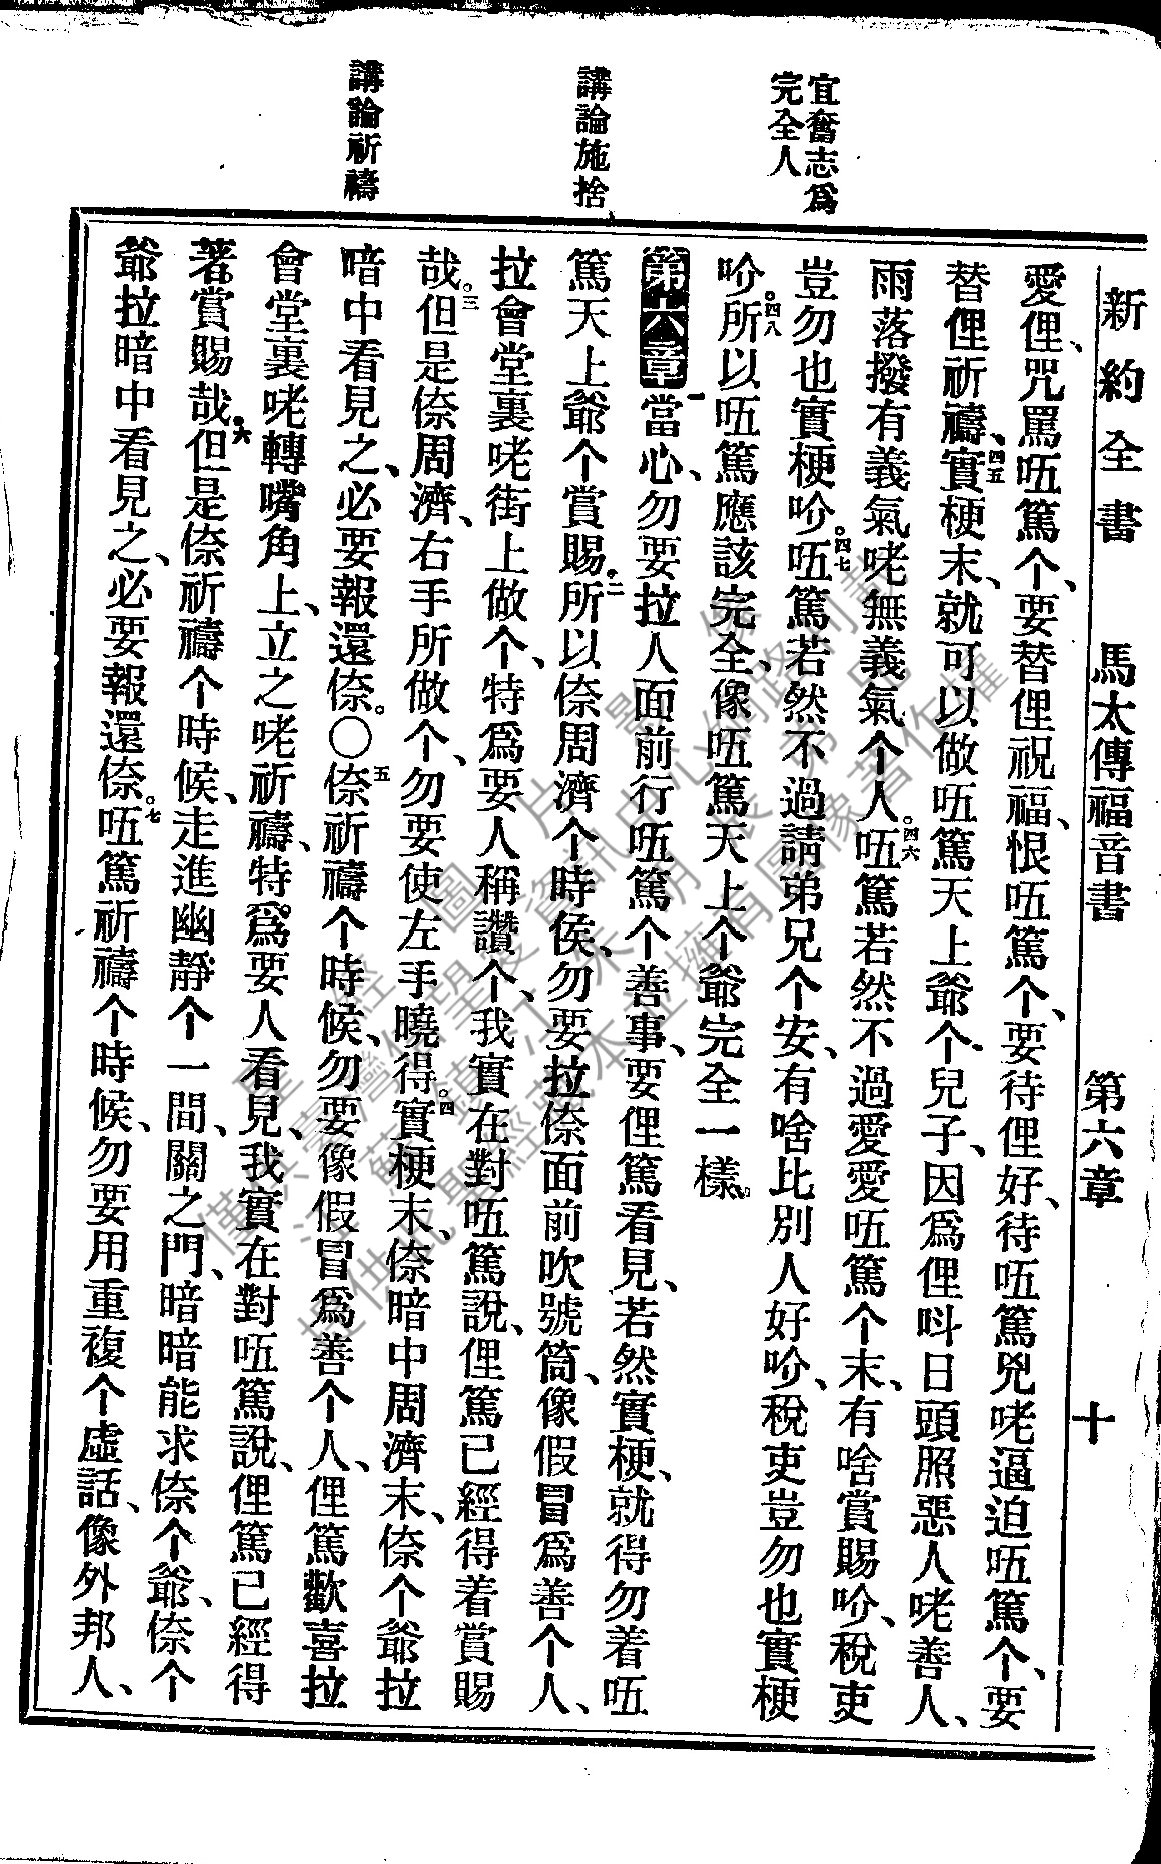 新約全書　馬太傳福音書　第六章　十
宜奮志爲
完全人
講論施捨
講論祈禱
愛俚、咒罵㕶篤个、要替俚祝福、恨㕶篤个、要待俚好、待㕶篤兇咾逼迫㕶篤个、要
替俚祈禱、四五實梗末、就可以做㕶篤天上爺个兒子、因爲俚呌日頭照惡人咾善人、
雨落撥有義氣咾無義氣个人。四六㕶篤若然不過愛愛㕶篤个末、有啥賞賜吤、稅吏
豈勿也實梗吤。四七㕶篤若然不過請弟兄个安、有啥比別人好吤、稅吏豈勿也實梗
吤。四八所以㕶篤應該完全、像㕶篤天上个爺完全一樣。
第六章一當心、勿要拉人面前行㕶篤个善事、要俚篤看見、若然實梗、就得勿着㕶
篤天上爺个賞賜。二所以倷周濟个時候、勿要拉倷面前吹號筒、像假冒爲善个人、
拉會堂裏咾街上做个、特爲要人稱讚个、我實在對㕶篤說、俚篤已經得着賞賜
哉。三但是倷周濟、右手所做个、勿要使左手曉得。四實梗末、倷暗中周濟末、倷个爺拉
暗中看見之、必要報還倷。〇五倷祈禱个時候、勿要像假冒爲善个人、俚篤歡喜拉
會堂裏咾轉嘴角上、立之咾祈禱、特爲要人看見、我實在對㕶篤說、俚篤已經得
著賞賜哉。六但是倷祈禱个時候、走進幽靜个一間、關之門、暗暗能求倷个爺、倷个
爺拉暗中看見之、必要報還倷。七㕶篤祈禱个時候、勿要用重複个虛話、像外邦人、